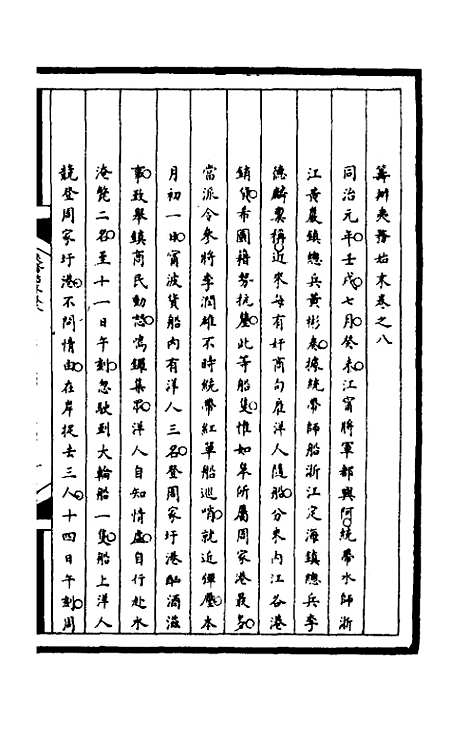 籌辦夷務始末卷之八
同治元年壬戌七月癸未江甯將軍都興阿統帶水師浙
江黃巖鎮總兵黃彬奏據統帶師船浙江定海鎮總兵李
德麟稟稱近來每有奸商句雇洋人隨船分來內江各港
銷貨希圖藉勢抗釐此等船隻惟如皋所屬周家港最多
當派令參將李潤雄不時統帶紅單船巡哨就近彈壓本
月初一日甯波貨船內有洋人三名登周家圩港酗酒滋
事致舉鎮商民動怒鳴鑼集眾洋人自知情虛自行赴水
淹斃二名至十一日午刻忽駛到大輪船一隻船上洋人
競登周家圩港不問情由在岸捉去三人十四日午刻周